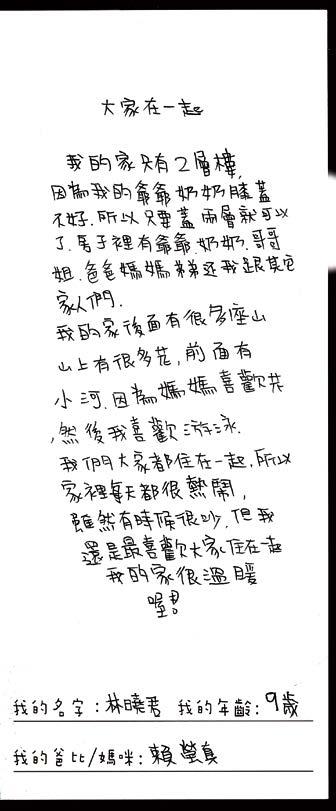 大家在一起
我的家只有2層樓,
因為我的爺爺奶奶膝蓋
不好.所以只要蓋兩層就可以
了.房子裡有爺爺.奶奶.哥哥
姐.爸爸媽媽 還我跟其它
家人們.
我的家後面有很多座山
山上有很多花,前面有
小河.因為媽媽喜歡花
,然後我喜歡游泳.
我們大家都住在一起.所以
家裡每天都很熱鬧,
雖然有時候很吵.但我
還是最喜歡大家住在一起
我的家很溫暖
喔!
我的名字:林曉君 我的年齡:9歲
我的爸比/媽咪:賴瑩真